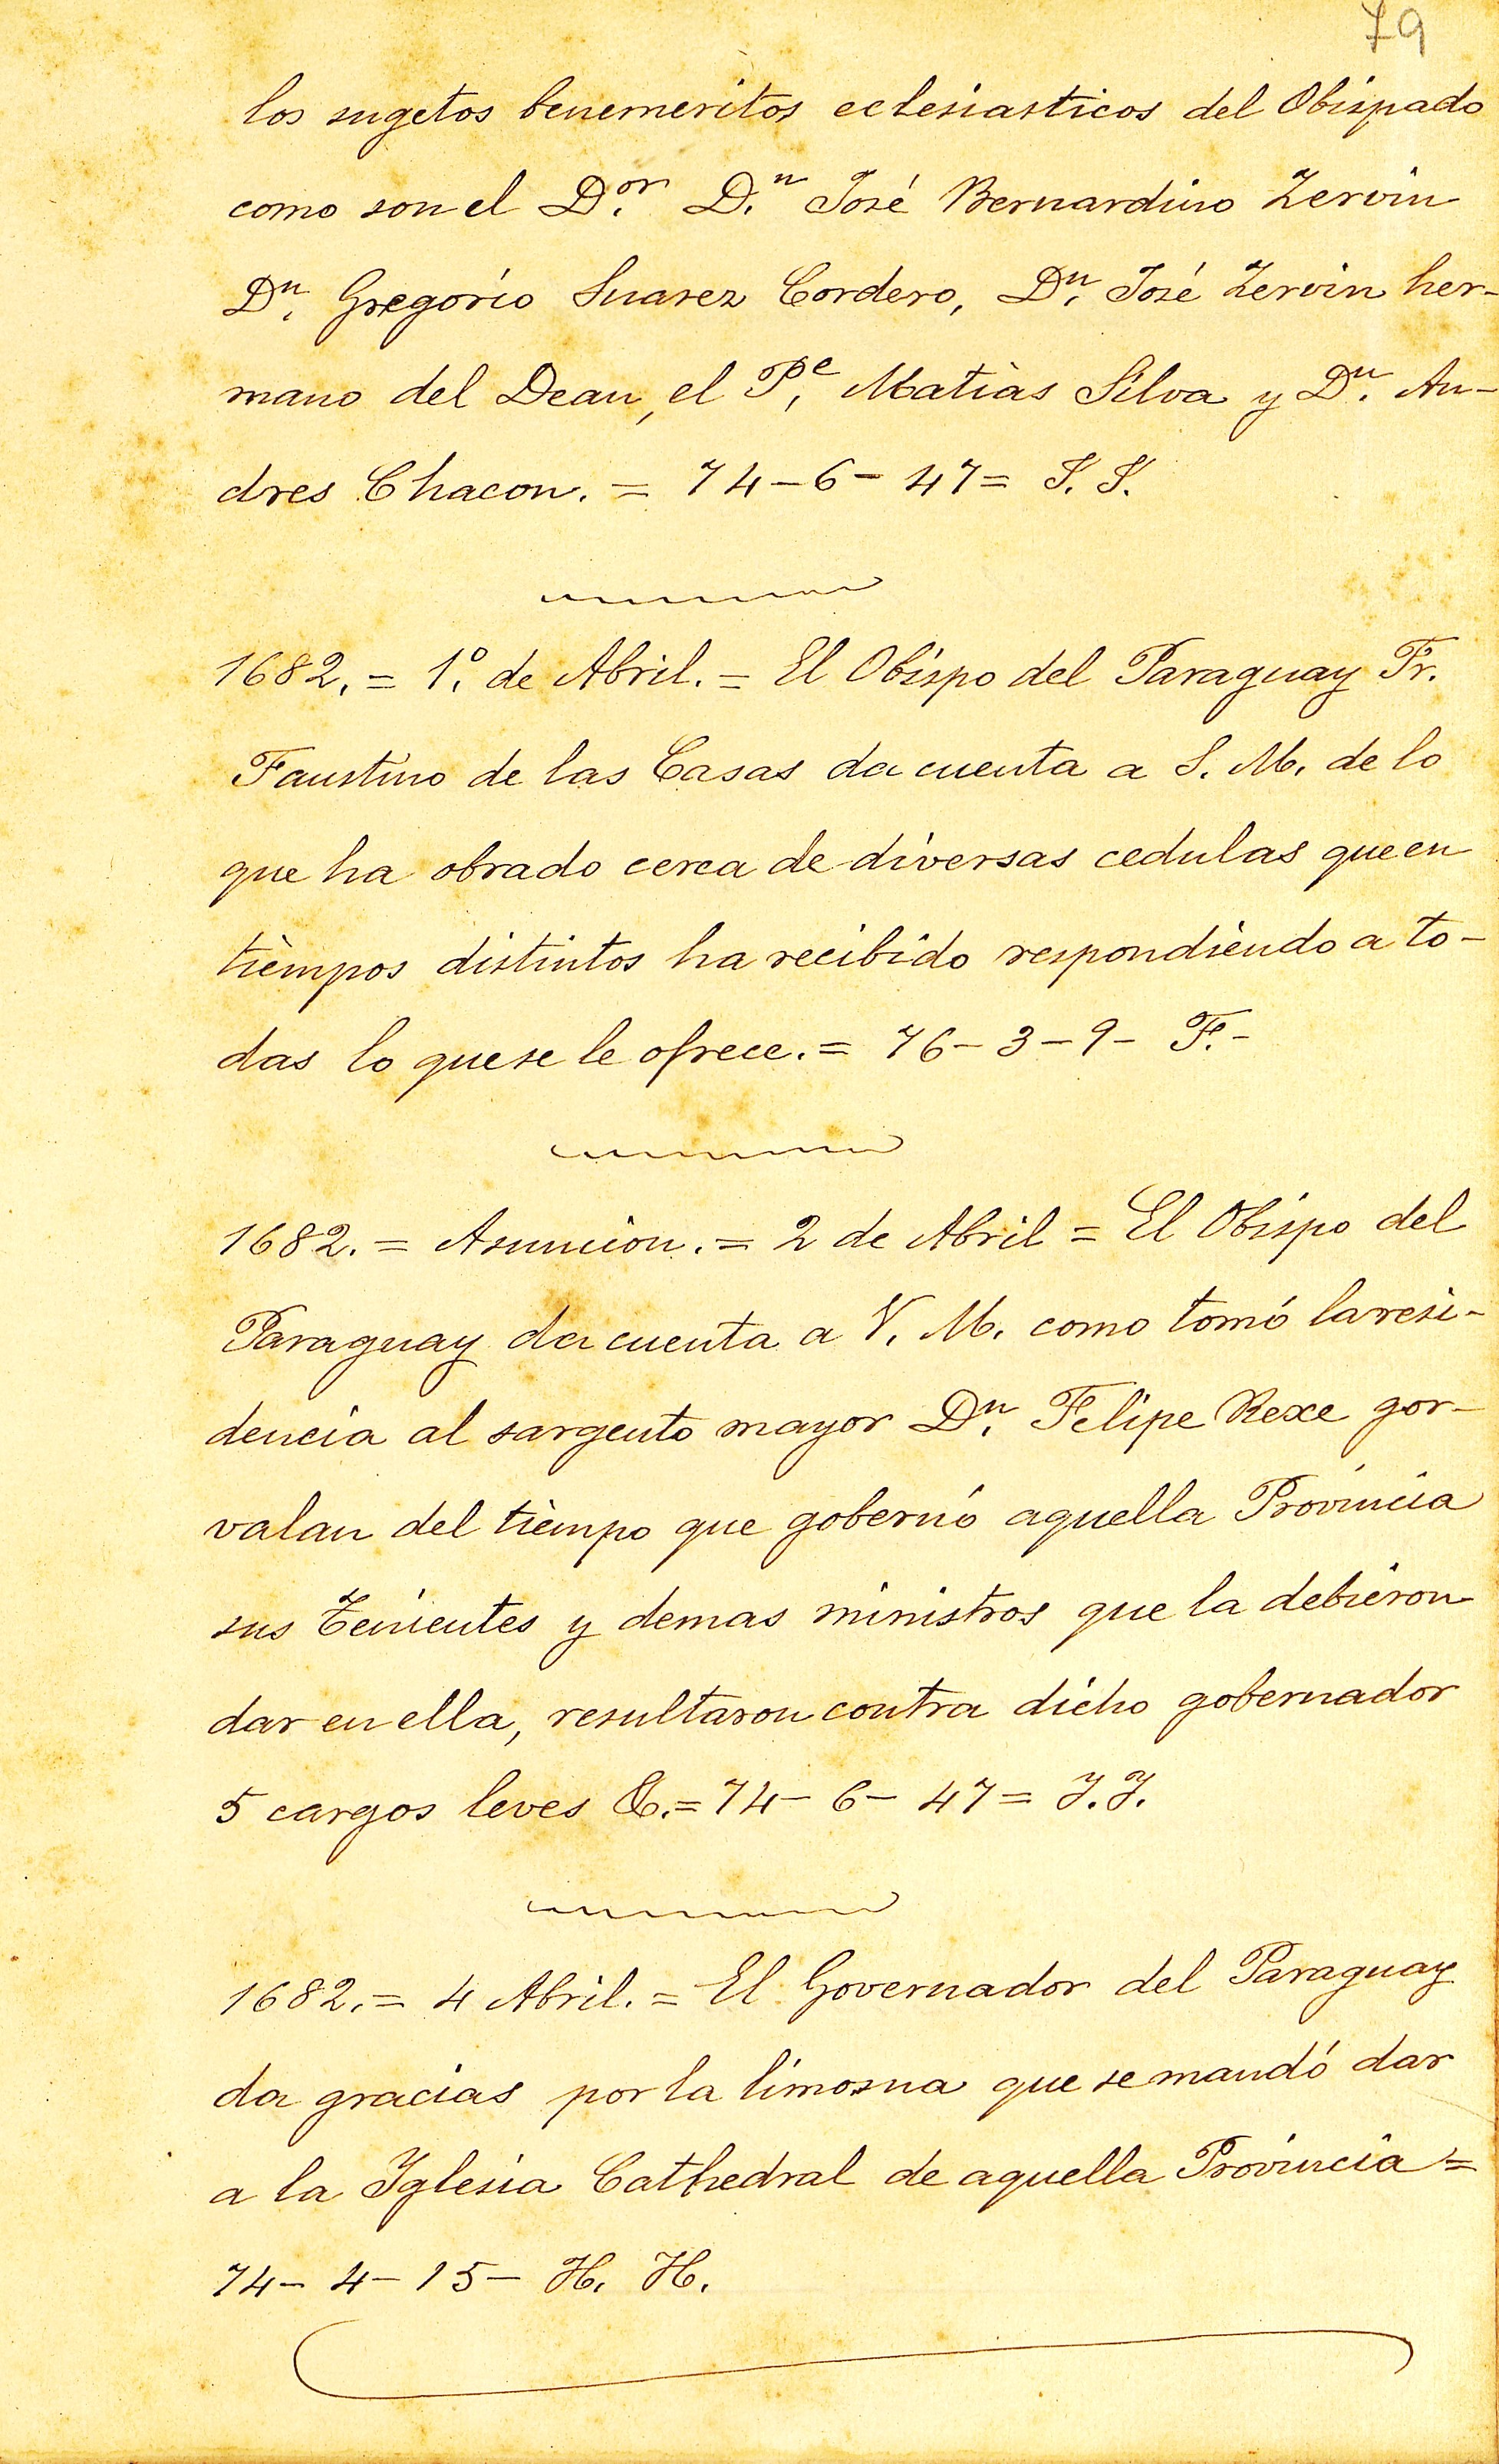 79
los sugetos benemeritos eclesiasticos del Obispado
como son el D.or D.n José Bernardino Zervin
Dn. Gregorio Suarez Cordero, Dn. José Zervin her-
mano del Dean, el P.e Matias Silva y Dn. An-
dres Chacon. = 74-6-47= S. S.
1682. = 1.º de Abril. = El Obispo del Paraguay Fr.
Faustino de las Casas da cuenta a S. M. de lo
que ha obrado cerca de diversas cedulas que en
tiempos distintos ha recibido respondiendo a to-
das lo que se le ofrece. = 76-3-9- F.-
1682. = Asuncion. = 2 de Abril = El Obispo del
Paraguay da cuenta a V. M. como tomó la resi-
dencia al sargento mayor Dn. Felipe Rexe gor-
valan del tiempo que gobernó aquella Provincia
sus Tenientes y demas ministros que la debieron
dar en ella, resultaron contra dicho gobernador
5 cargos leves &. = 74-6-47= J.J.
1682. = 4 Abril. = El Governador del Paraguay
da gracias por la limosna que se mandó dar
a la Iglesia Cathedral de aquella Provincia =
74-4-15- H. H.